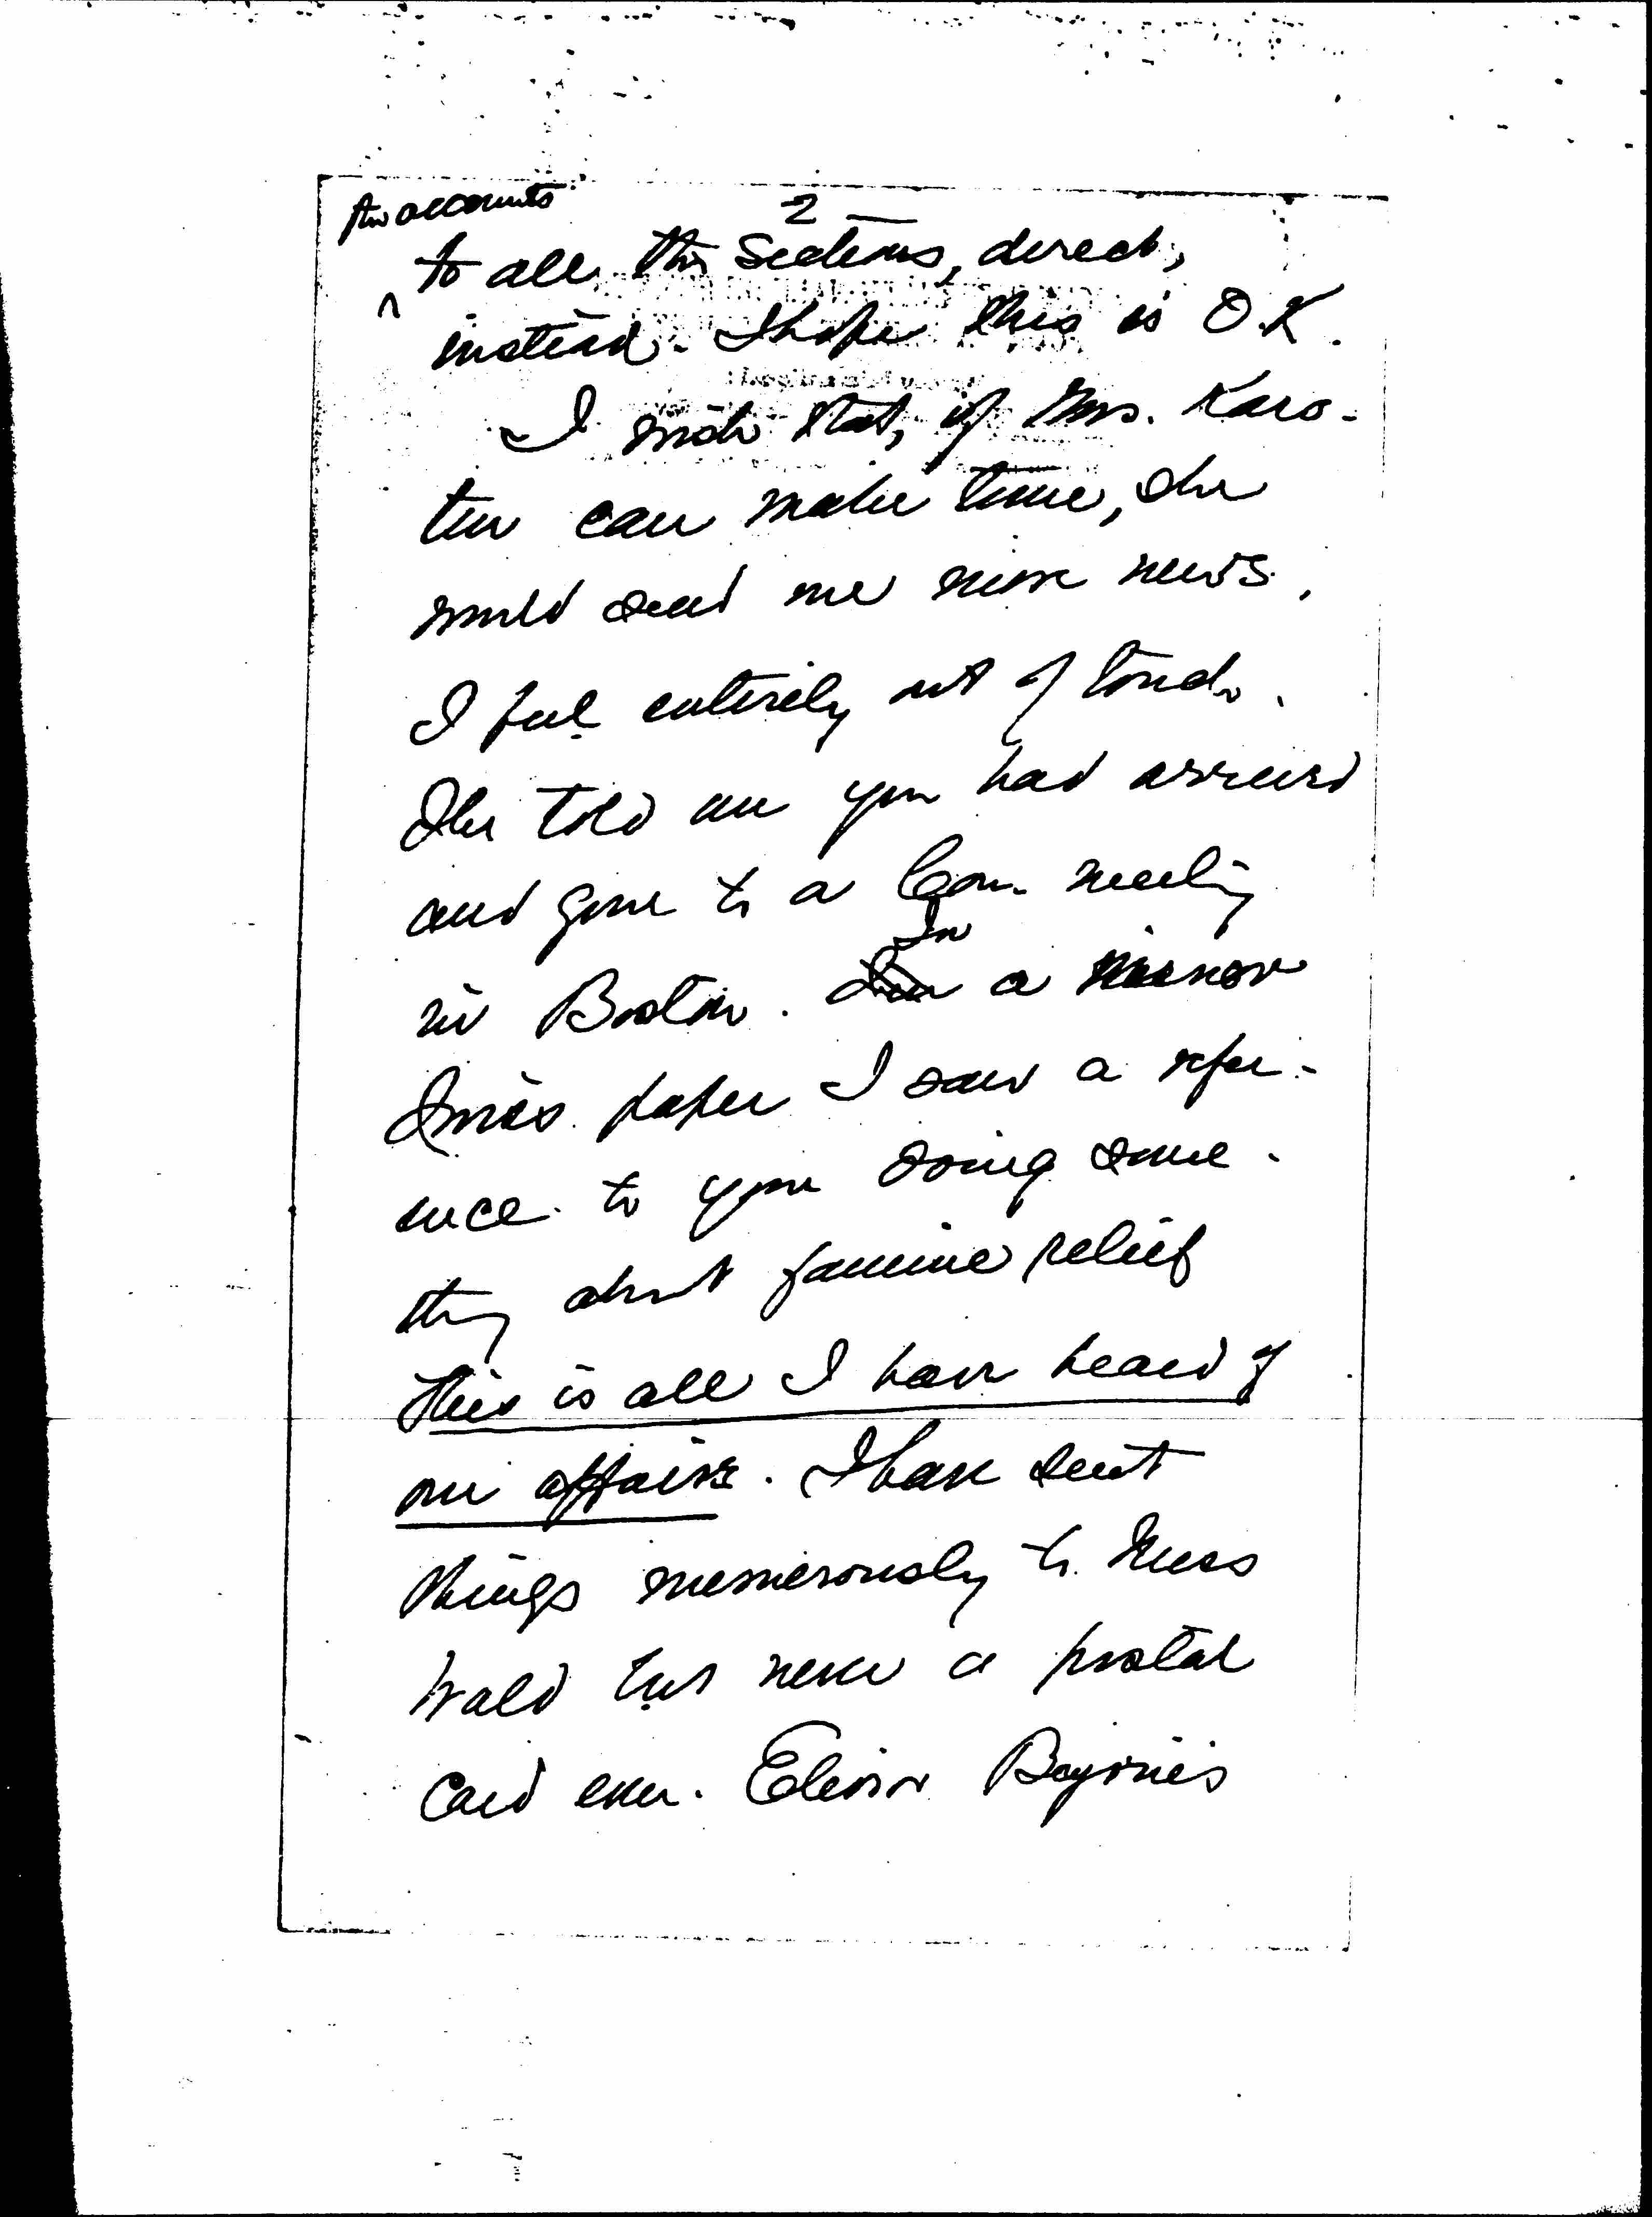 2 —
the accounts
^ to all the Sections, direct,
instead. I hope this is O.K.
I wish that, if Mrs. Kars-
ten can make time, she
would send me more news.
I feel entirely out of touch.
She told me you had arrived
and gone to a Com. meeting
in Boston. In a
Swiss paper I saw a refer-
ence to your doing some-
thing about famine relief
This is all I have heard of
our affairs. I have sent
things numerously to Miss
Wald but never a postal
card even. Elinor Byrns's